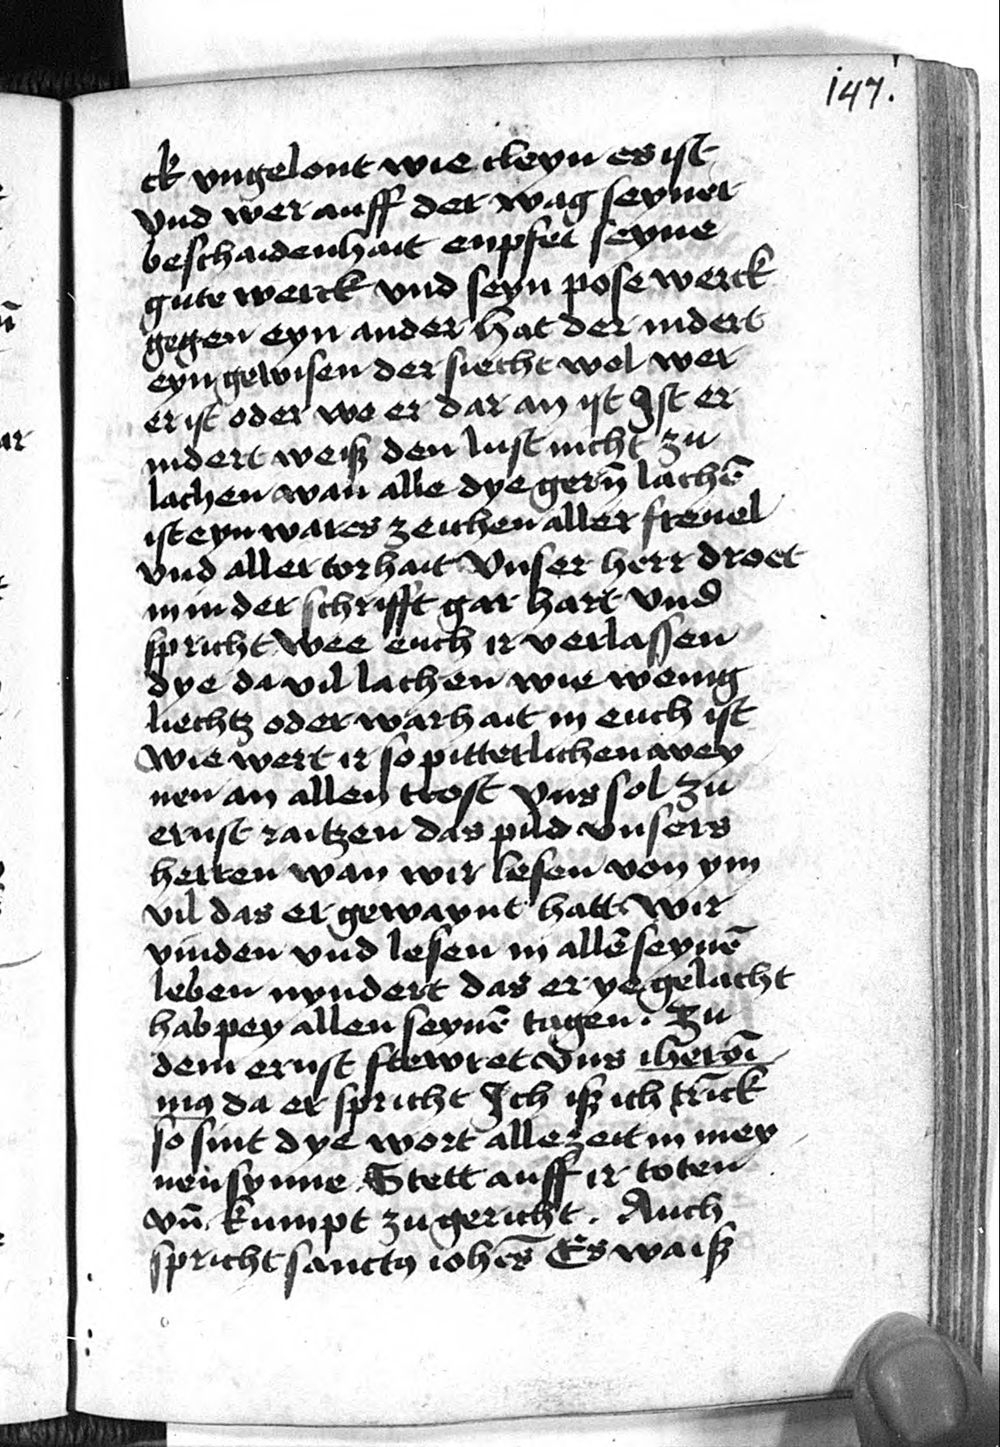 147.
ck vngelont wie cleyn es ist
Vnd wer auff der wag seyner
beschaidenhait enpfet seyne
gute werck vnd seyn pose werck
gegen eyn ander hat der indert
eyn gewisen der siecht wol wer
er ist oder wo er dar an ist Ist er
indert weiß den lust nicht zu
lachen wan alle dye gern̄ lachē
ist eyn wares zeichen aller freuel
vnd aller torhait Vnser herr droet
in in der schrifft gar hart Vnd
spricht Wee euch ir verlassen
dye da vil lachen wie wenig
liechtz oder warhait in euch ist
Wie wert ir so pitterlichen wey
nen an allen trost Vns sol zu
ernst raitzen das pild vnsers
herren wan wir lesen von ym
vil das er gewaynt hatt Wir
vinden vnd lesen in allē seynē
leben nyndert das er ye gelacht
hab pey allen seynē tagen. Zu
dem ernst stewret Vns iheroī
mꝯ da er spricht Ich iß ich trīck
so sint dye wort alle zeit in mey
nen synne Stett auff ir toten
vn̄ kumpt zu gericht. Auch
spricht sanctꝯ iohēs Es waiß